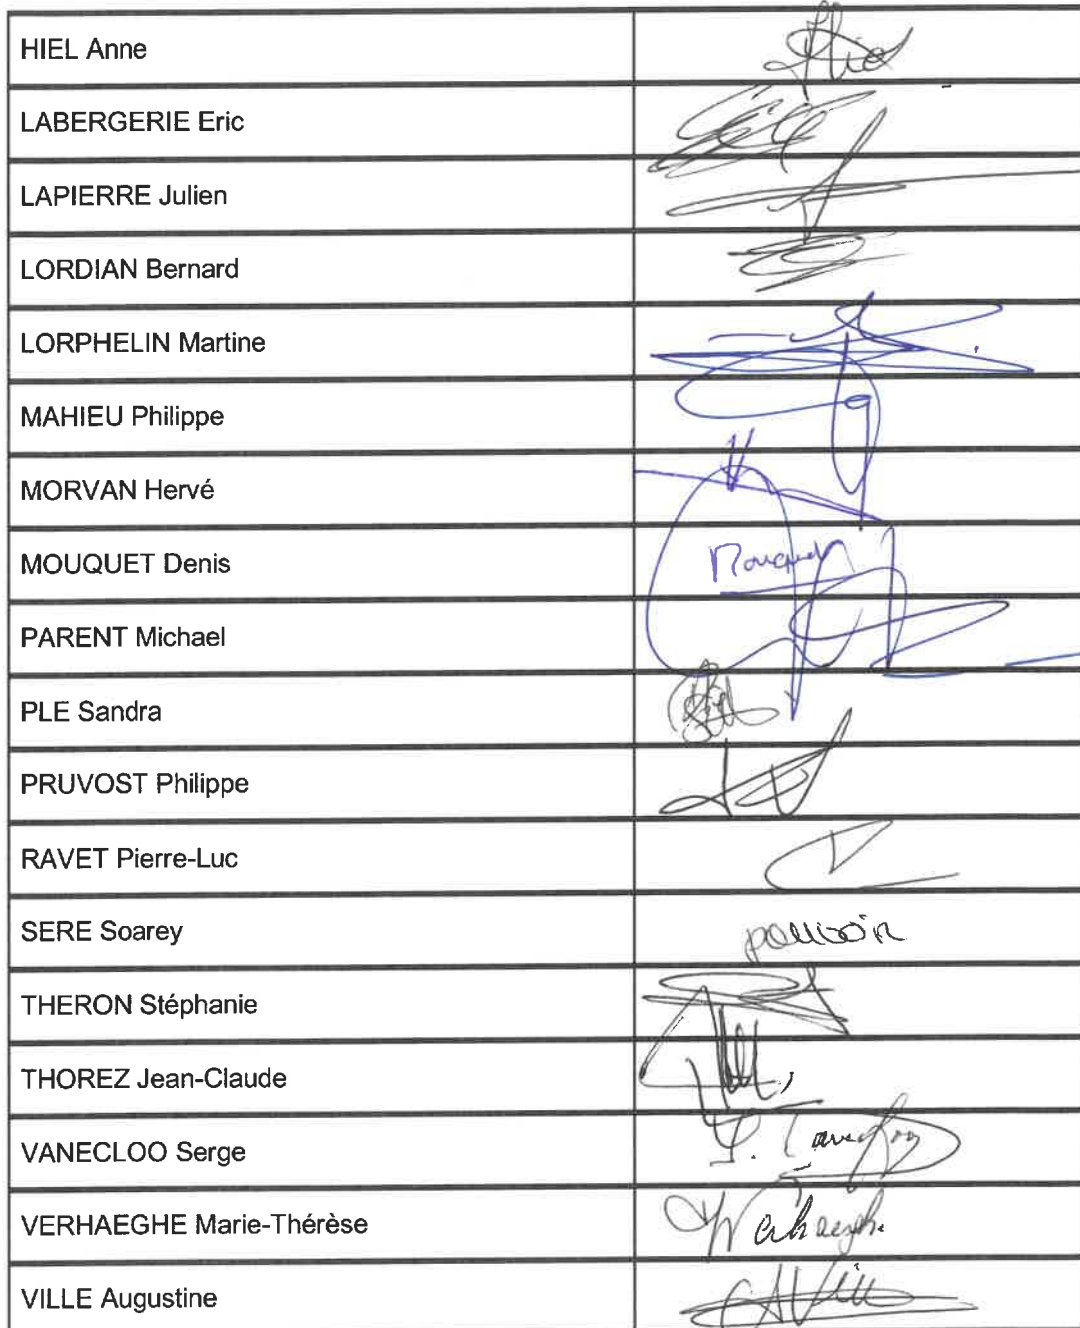 HIEL Anne
LABERGERIE Eric
LAPIERRE Julien
LORDIAN Bernard
LORPHELIN Martine
MAHIEU Philippe
MORVAN Hervé
MOUQUET Denis
PARENT Michael
PLE Sandra
PRUVOST Philippe
RAVET Pierre-Luc
SERE Soarey pouvoir
THERON Stéphanie
THOREZ Jean-Claude
VANECLOO Serge
VERHAEGHE Marie-Thérèse Verhaeghe
VILLE Augustine AVille